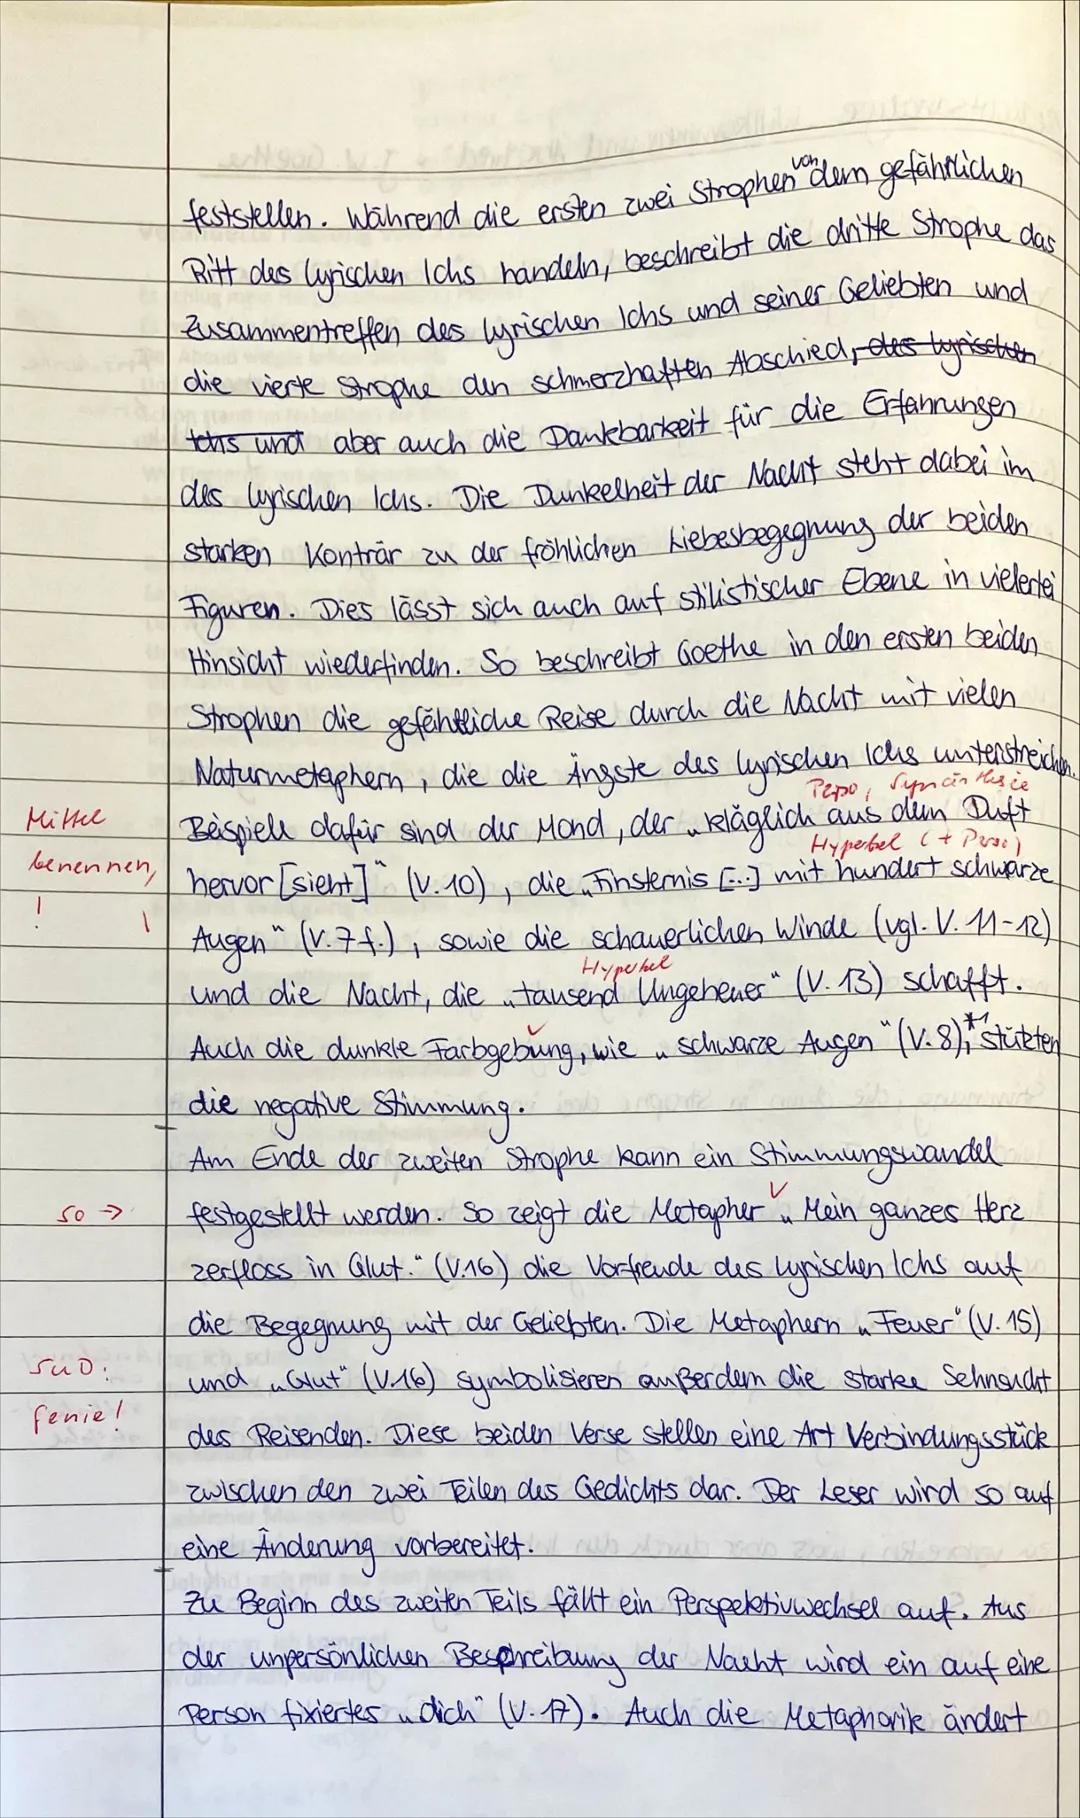 feststellen. Während die ersten zwei Strophen von dem gefährlichen
Ritt des lyrischen Ichs handeln, beschreibt die dritte Strophe das
Zusammentreffen des lyrischen Ichs und seiner Geliebten und
die vierte Strophe den schmerzhaften Abschied, des lyrischen
Ichs und aber auch die Dankbarkeit für die Erfahrungen
des lyrischen Ichs. Die Dunkelheit der Nacht steht dabei im
starken Konträr zu der fröhlichen Liebesbegegnung der beiden
Figuren. Dies lässt sich auch auf stilistischer Ebene in vielerlei
Hinsicht wiederfinden. So beschreibt Goethe in den ersten beiden
Strophen die gefährliche Reise durch die Nacht mit vielen
Naturmetaphern, die die Ängste des lyrischen Ichs unterstreichen.
Synästhesie
Mittel Beispiele dafür sind der Mond, der „kläglich aus dem Duft
Hyperbel (+ Perso)
benennen, hervor [sieht]" (V.10), die „Finsternis [...] mit hundert schwarze
! Augen" (V.7f.), sowie die schauerlichen Winde (vgl. V. 11-12)
Hyperbel
und die Nacht, die „tausend Ungeheuer" (V.13) schafft.
Auch die dunkle Farbgebung, wie „schwarze Augen" (V.8),*1 stützten
die negative Stimmung.
Am Ende der zweiten Strophe kann ein Stimmungswandel
so → festgestellt werden. So zeigt die Metapher „Mein ganzes Herz
zerfloss in Glut." (V.16) die Vorfreude des lyrischen Ichs auf
die Begegnung mit der Geliebten. Die Metaphern „Feuer" (V.15)
SuD: und „Glut" (V.16) symbolisieren außerdem die starke Sehnsucht
Genie! des Reisenden. Diese beiden Verse stellen eine Art Verbindungsstück
zwischen den zwei Teilen des Gedichts dar. Der Leser wird so auf
eine Änderung vorbereitet.
Zu Beginn des zweiten Teils fällt ein Perspektivwechsel auf. Aus
der unpersönlichen Beschreibung der Nacht wird ein auf eine
Person fixiertes „dich" (V.17). Auch die Metaphorik ändert